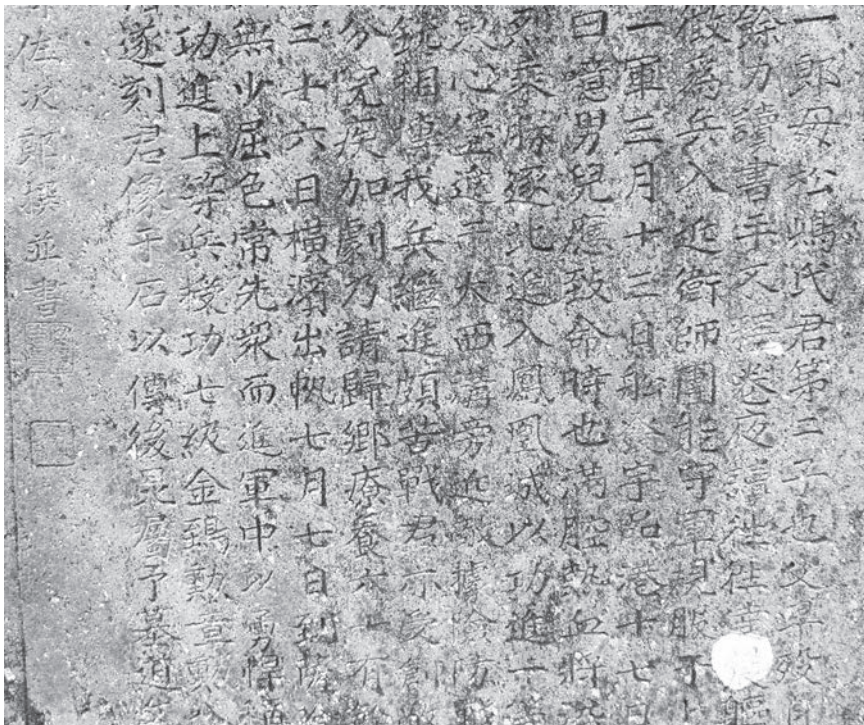 一郎母松嶋氏君第二子也父卑歿
餘力讀書手不釋卷夜讀往往
徵爲兵入近衛師團能守軍規服
一軍三月十三日舩發宇品港十七日
曰噫男兒應致命時也満腔熱血將
烈乘勝逐北追入鳳凰城以功進一
興心堡進于大西溝旁近敵據險防
銃相摶我兵繼進頗苦戰君亦受創
分院疾加劇乃請歸鄉療養六有
二十六日橫濱出帆七月七日到
無少屈色常先衆而進軍中以勇悍稱
功進上等兵授功七級金鵄勲章勲
遂刻君像于石以傳後昆屬予墓道
佐次郎撰並書